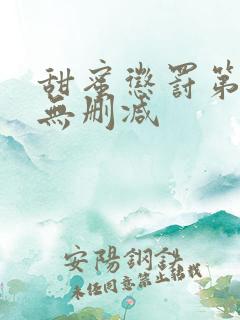 甜蜜懲罰第
無刪減
安陽鋼鉄
未经同意禁止转载